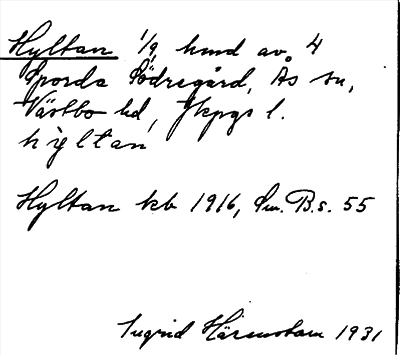 Hyltan 1/9 hmd av 4
Sporda Södregård, Ås sn,
Västbo hd, Jkpgs l.
hỳltan
Hyltan kb 1916, Sm. B. s. 55
Ingrid Härenstam 1931